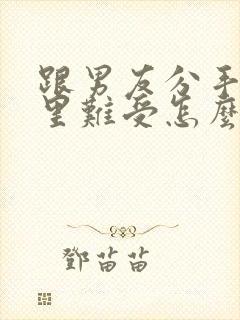 跟男友分手
里難受怎麼
鄧苗苗